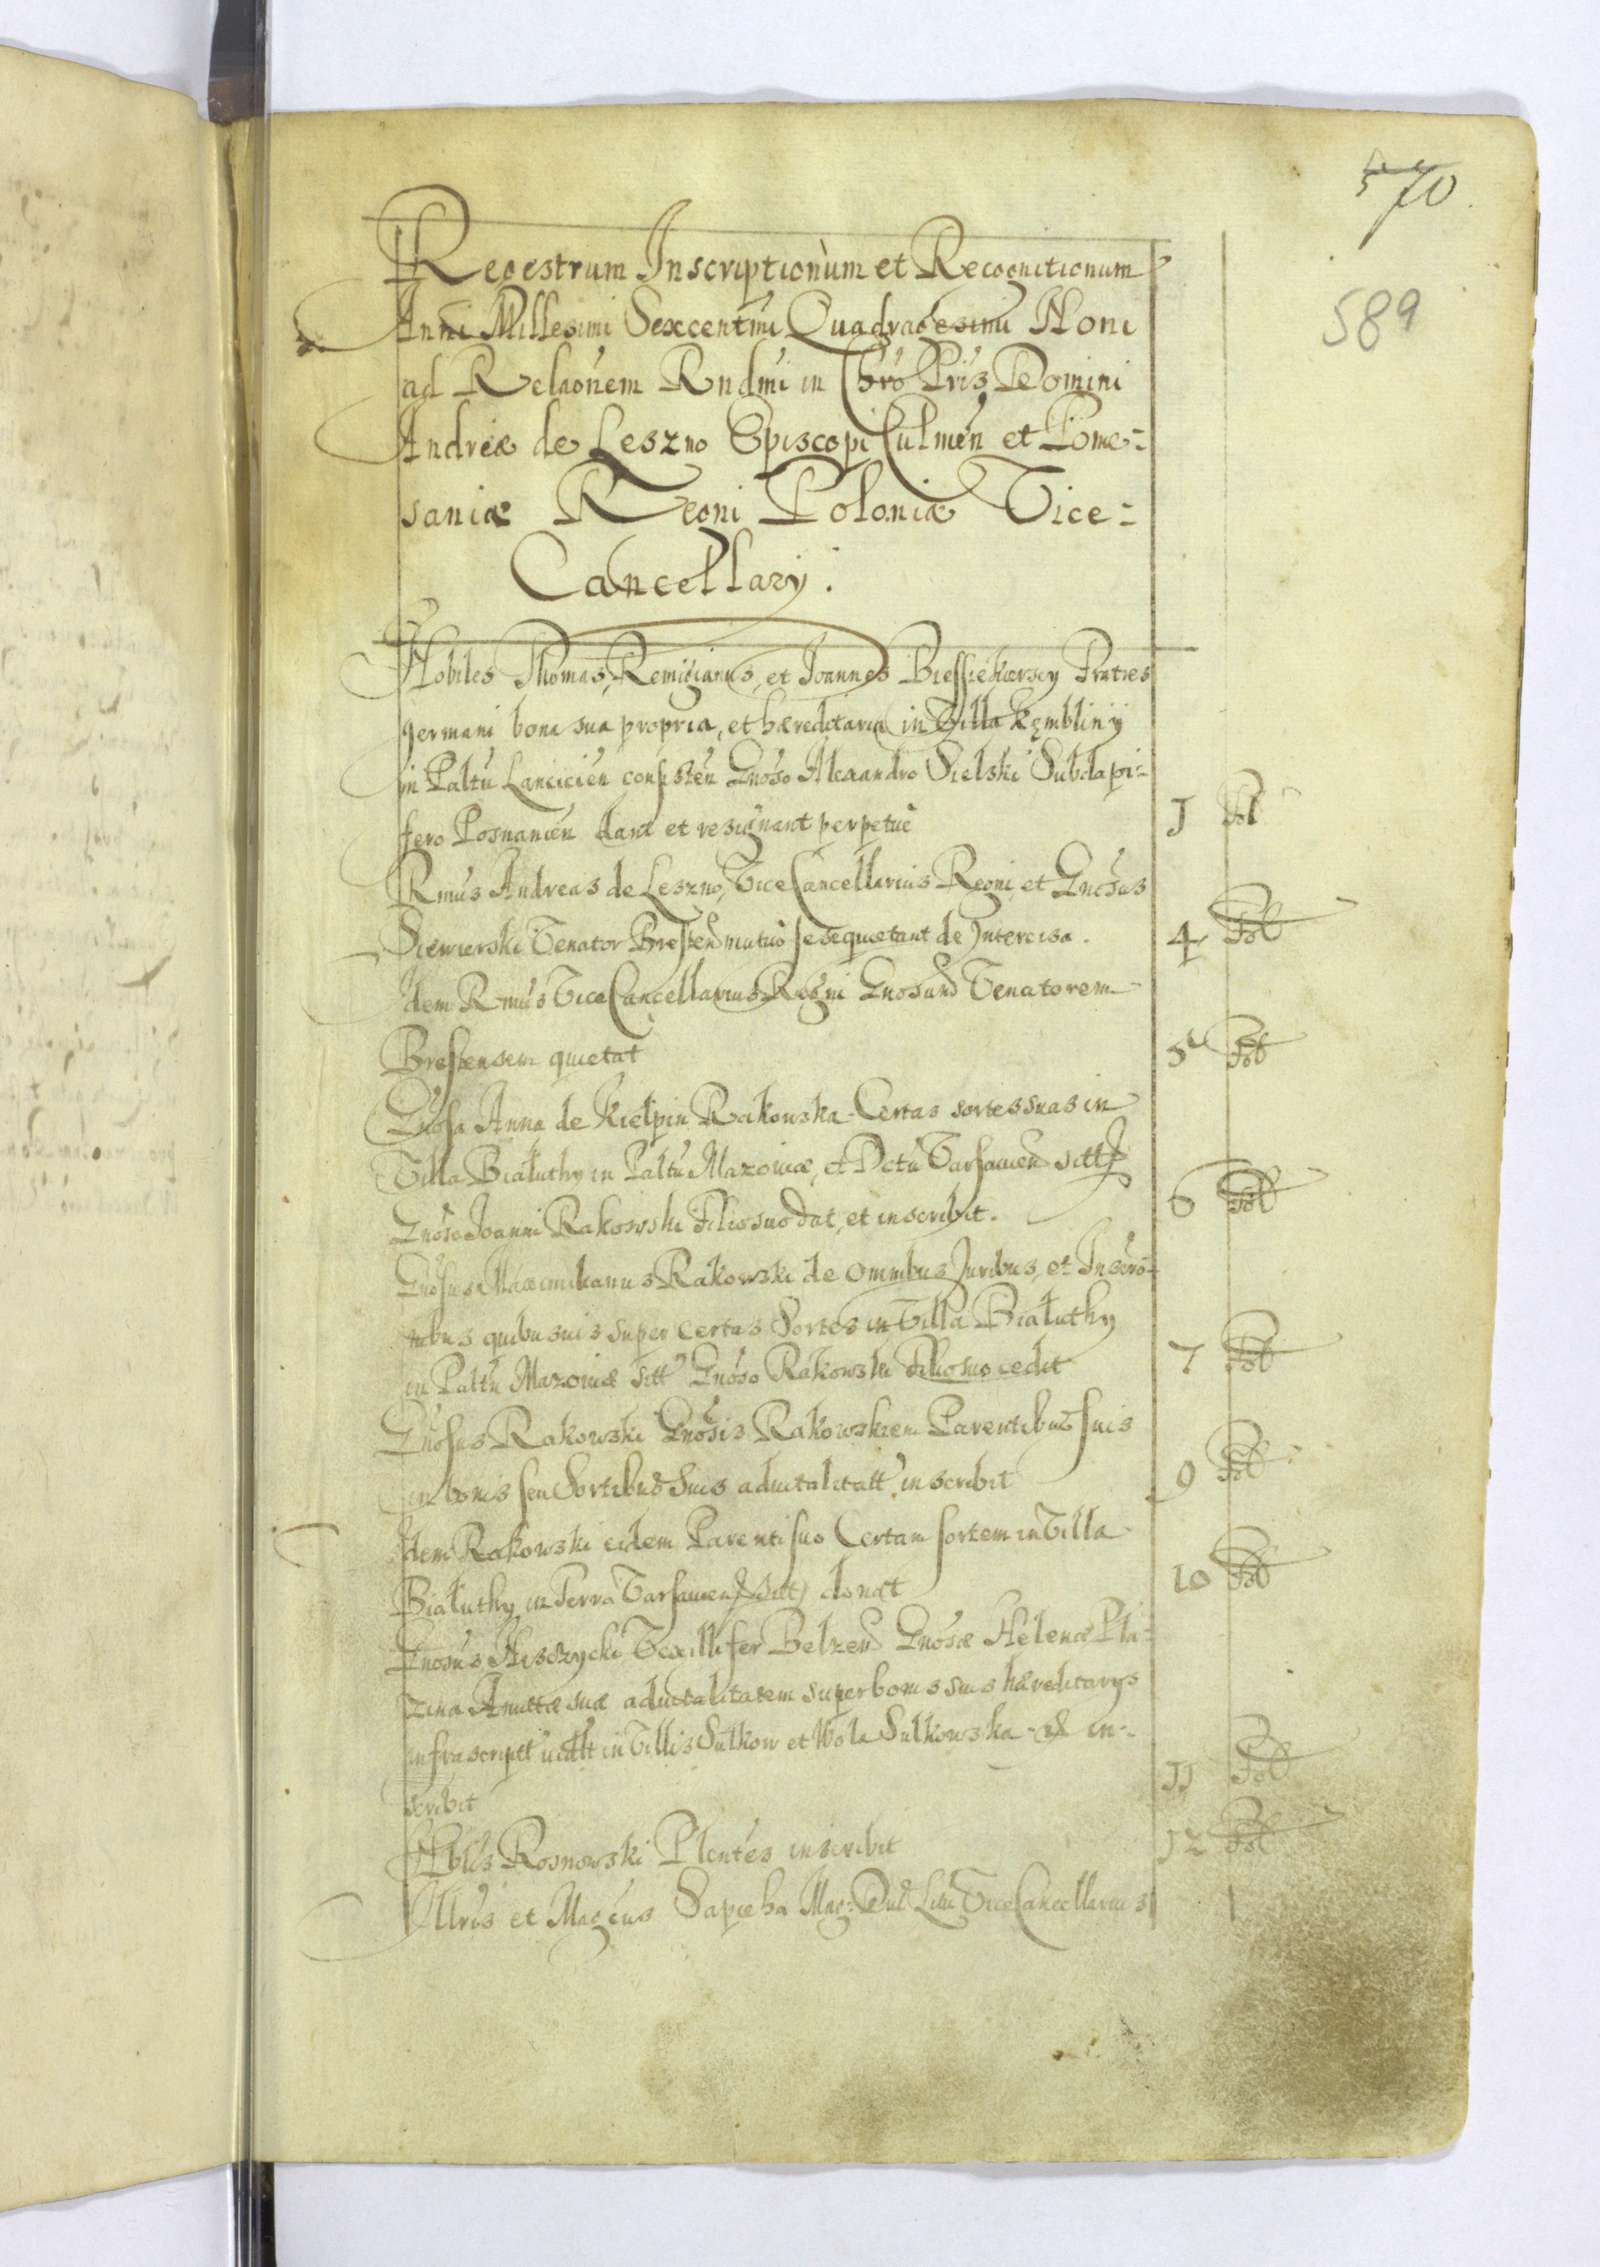 570.
589
Regestrum Inscriptionum et Recognitionum
Anni Millesimi Sexcentmi Quadragesimi Noni
ad Relaonem Rndmi in Chro Pris Domini
Andreæ de Leszno Episcopi Culmen et Pome=
saniæ Regni Poloniæ Vice=
Cancellary.
Nobiles Thomas, Remigianus, et Joannes Biessiekirscy Fratres
germani bona sua propria, et hæreditaria in Villa Kęmbliny
in Paltu Lancicien consisten Gnoso Alexandro Sielski Subdapi=
fero Posnanien dant et resignant perpetue
J Fol
Rmus Andreas de Leszno, ViceCancellarius Regni et Gnosus
Siewierski Venator Bresten mutuo sese quietant de Intercisa.
4 Fol
Idem Rmus ViceCancellarius Regni Gnosum Venatorem
Brestensem quietat
5 Fol
Gnosa Anna de Kiełpin Rakowska Certas sortes suas in
Villa Białuthy in Paltu Mazoviæ, et Dctu Varsavien sitt
Gnoso Joanni Rakowski Filio suo dat, et inscribit.
6 Fol
Gnosus Maximilianus Rakowski de omnibus Juribus, et Inscrio=
nibus quibusuis super certas Sortes in Villa Białuthy
in Paltu Mazoviæ sitt Gnoso Rakowski Filio suo cedit
7 Fol
Gnosus Rakowski Gnosis Rakowskiem Parentibus suis
in bonis seu Sortibus suis aduitalitatt inscribit
9 Fol
Idem Rakowski eidem Parenti suo Certam sortem in Villa
Białuthy in Terra Varsavien sitt donat
10 Fol
Gnosus Vexillifer Belzen Gnosæ Helenæ
suæ aduitalitatem super bonis suis hæreditarys
infrascriptt uidtt in Villis Sulkow et Wola Sulkowska & in=
scribit
JJ Fol
Nblis Rosnowski Plentes inscribit
J2 Fol
Illris et Magcus Sapieha Mag: Duc Litu ViceCancellarius